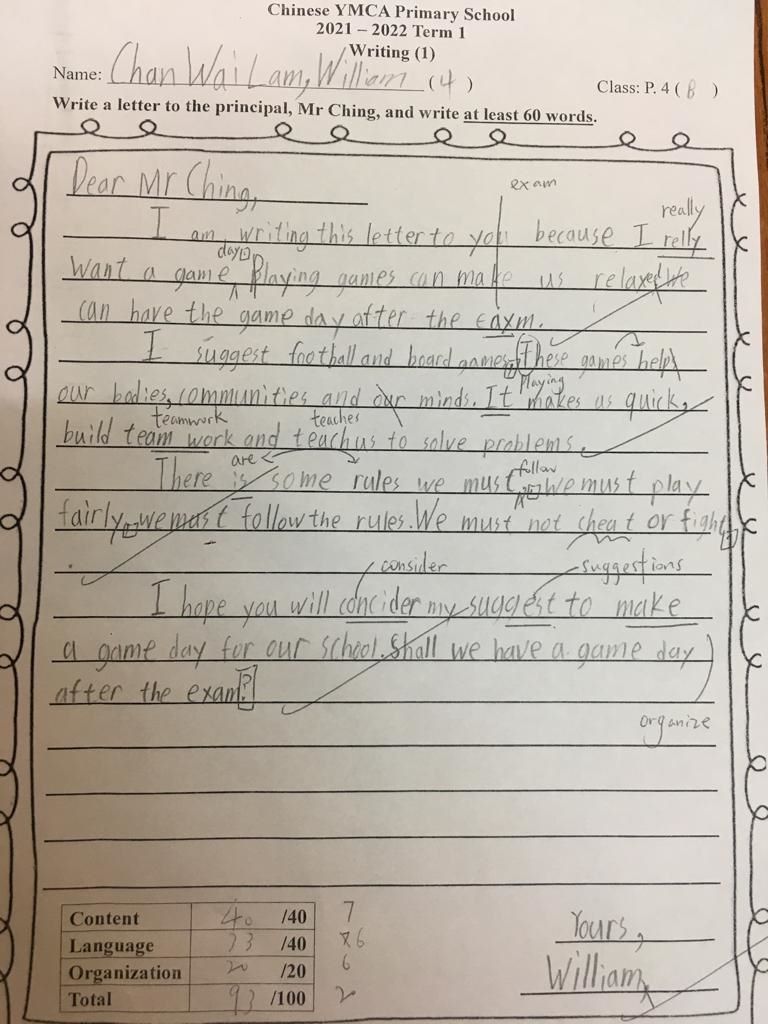 Chinese YMCA Primary School
2021 – 2022 Term 1
Writing (1)
Name: Chan Wai Lam, William (4) Class: P. 4 ( B )
Write a letter to the principal, Mr Ching, and write at least 60 words.
Dear Mr Ching,
exam
really
I am writing this letter to you because I relly
day
want a game. Playing games can make us relaxed. We
can have the game day after the eaxm.
I suggest football and board games. These games help
playing
our bodies, communities and our minds. It makes us quick,
teamwork teaches
build team work and teach us to solve problems.
are follow
There is some rules we must. We must play
fairly, we must follow the rules. We must not cheat or fight
.
consider suggestions
I hope you will concider my suggest to make
a game day for our school. Shall we have a game day
after the exam?
organize
Content 40 /40 7
Language 33 /40 6
Organization 20 /20 6
Total 93 /100 2
Yours,
William